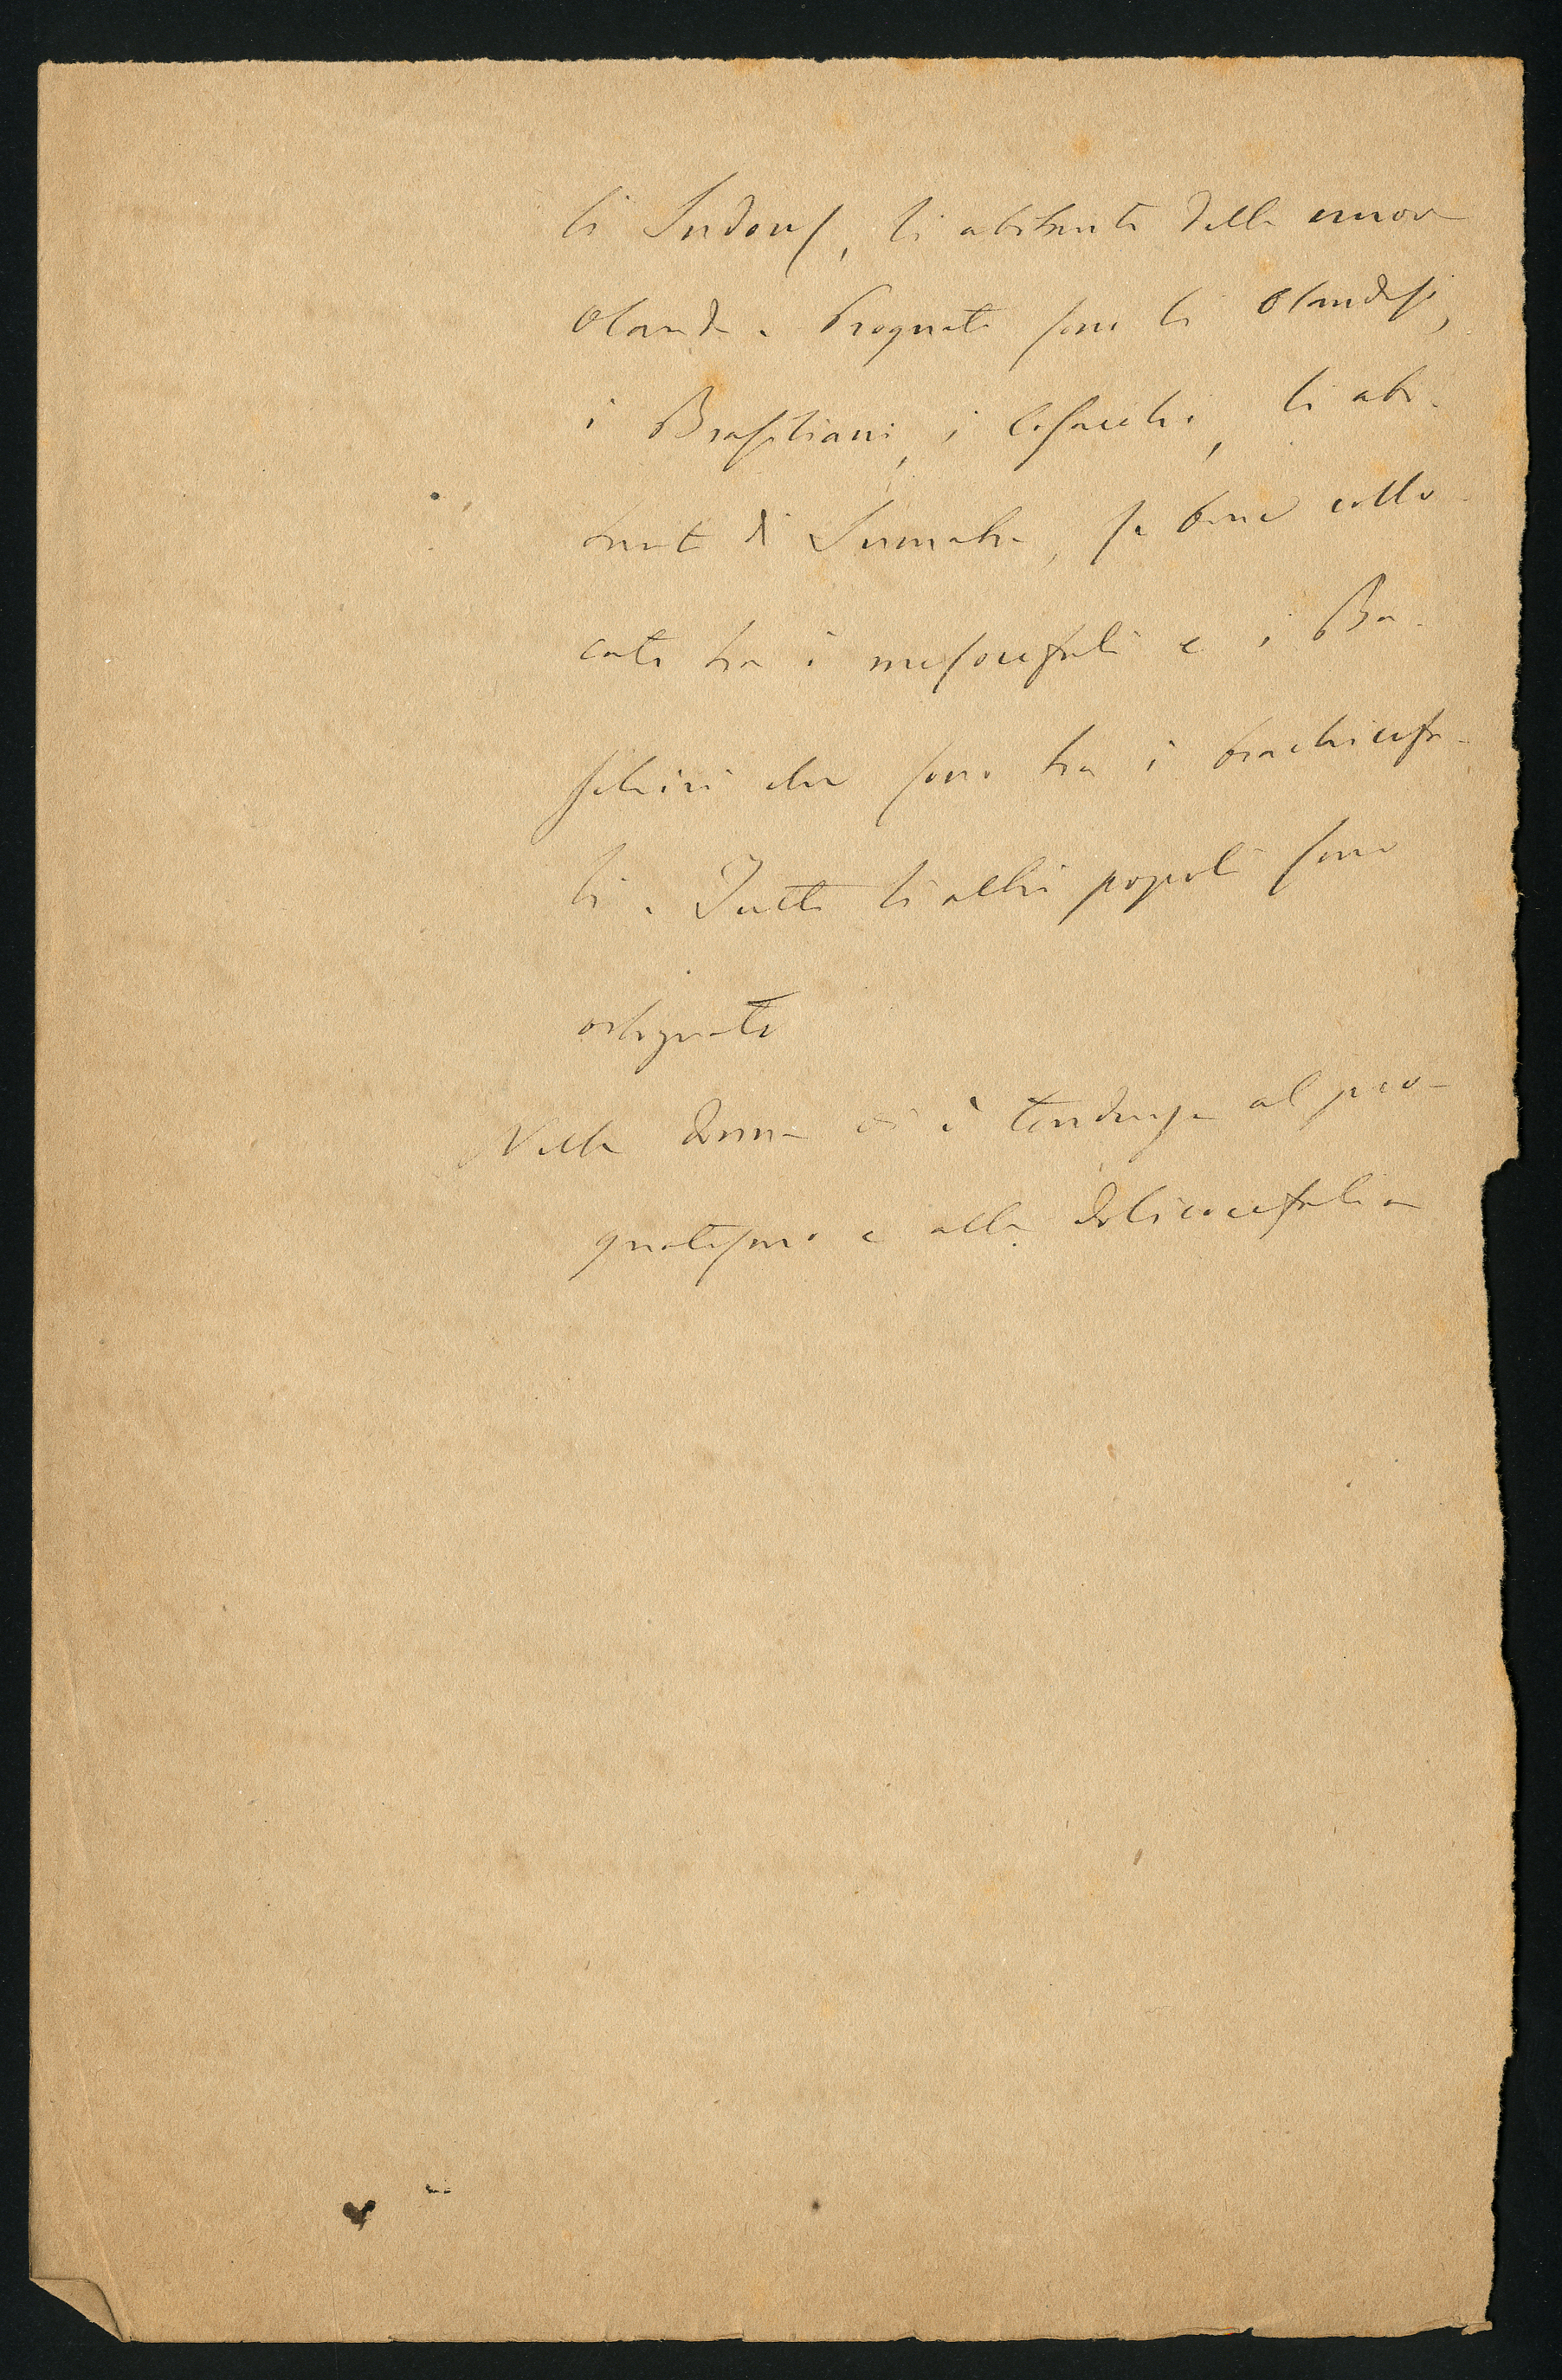 li Indous, li abitanti della nuova
Olanda. Prognati sono li Olandesi,
i Brasiliani, i Cosacchi, li abi-
tanti di Sumatra, se bene collo-
cati tra i mesocefali e i Ba-
schiri che sono tra i brachicefa-
li. Tutti li altri popoli sono
ortognati
Nella donna vi è tendenza al pro-
gnatismo e alla dolicocefalia